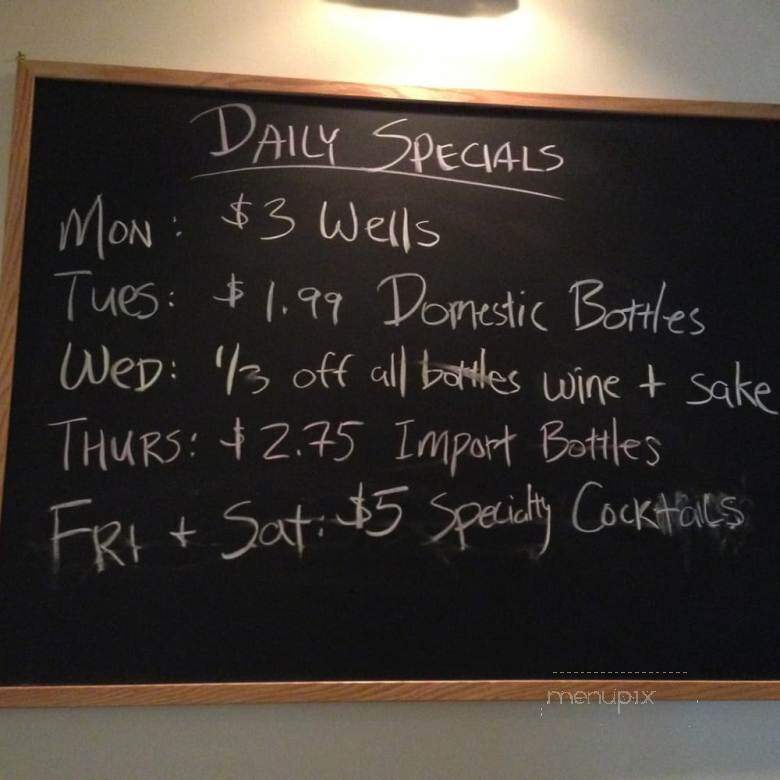 DAILY SPECIALS
MON: $3 Wells
TUES: $1.99 Domestic Bottles
WED: 1/3 off all bottles wine + sake
THURS: $2.75 Import Bottles
FRI + Sat: $5 Specialty Cocktails
menupix